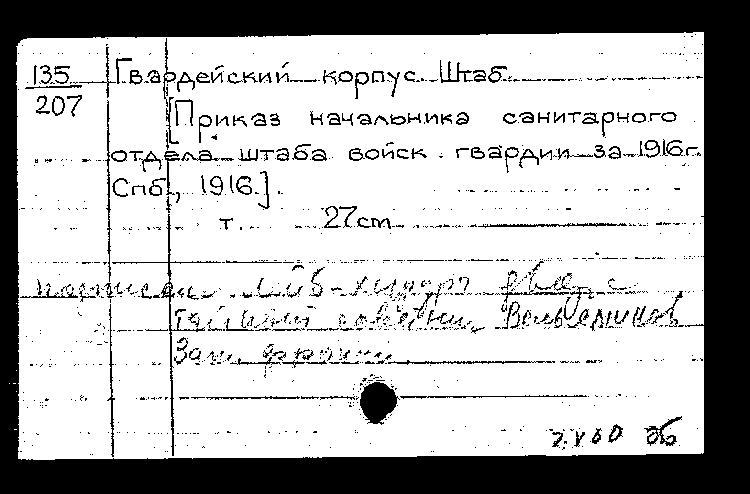 135
207
Гвардейский корпус. Штаб
[Приказ начальника санитарного
отдела штаба войск гвардии за 1916г.
Спб., 1916.].
т. 27cm
подписал лейб-хирург
тайный советник Вельяминов
Зап. фронт.